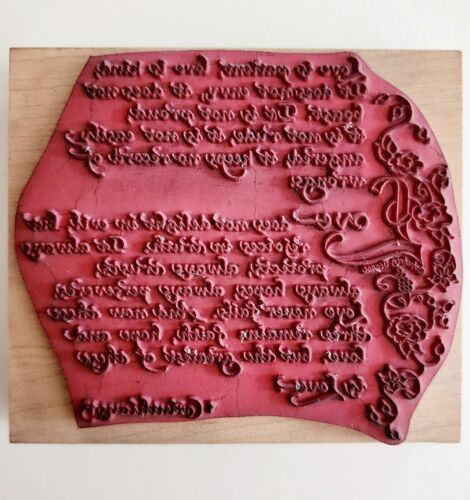 Love is patient, love is kind.
It does not envy, it does not
boast, it is not proud.
It is not rude, it is not easily
angered, it keeps no record of
wrongs.
does not delight in evil but
in truth. It always
protects, always trusts,
always hopes, always perseveres.
Love never fails. And now these
three remain: faith, hope and
love. But the greatest of these
is love.
Corinthians